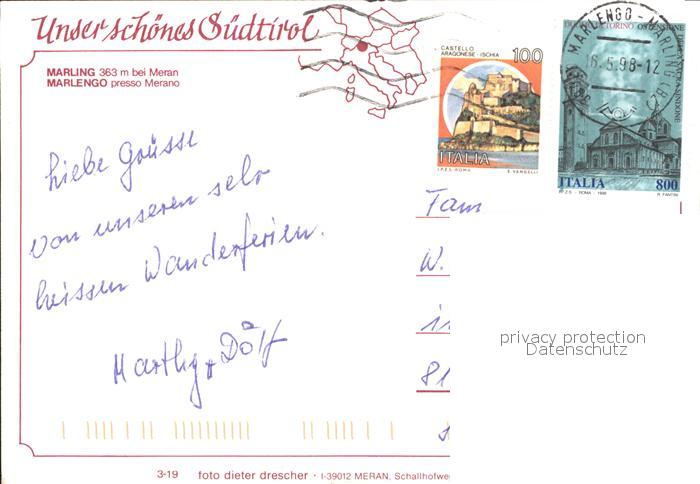 Unser schönes Südtirol
MARLING 363 m bei Meran
MARLENGO presso Merano
CASTELLO
ARAGONESE - ISCHIA
100
ITALIA
I.P.Z.S. - ROMA E. VANGELLI
TORINO OSTENSIONE
ITALIA 800
I.P.Z.S. - ROMA - 1998 R. FANTINI
MARLENGO - MARLING (BZ)
16.5.98-12
Liebe Grüsse
von unseren sehr
heissen Wanderferien.
Marthy + Dölf
Fam
W.
in
81
privacy protection
Datenschutz
3-19 foto dieter drescher · I-39012 MERAN, Schallhofwe